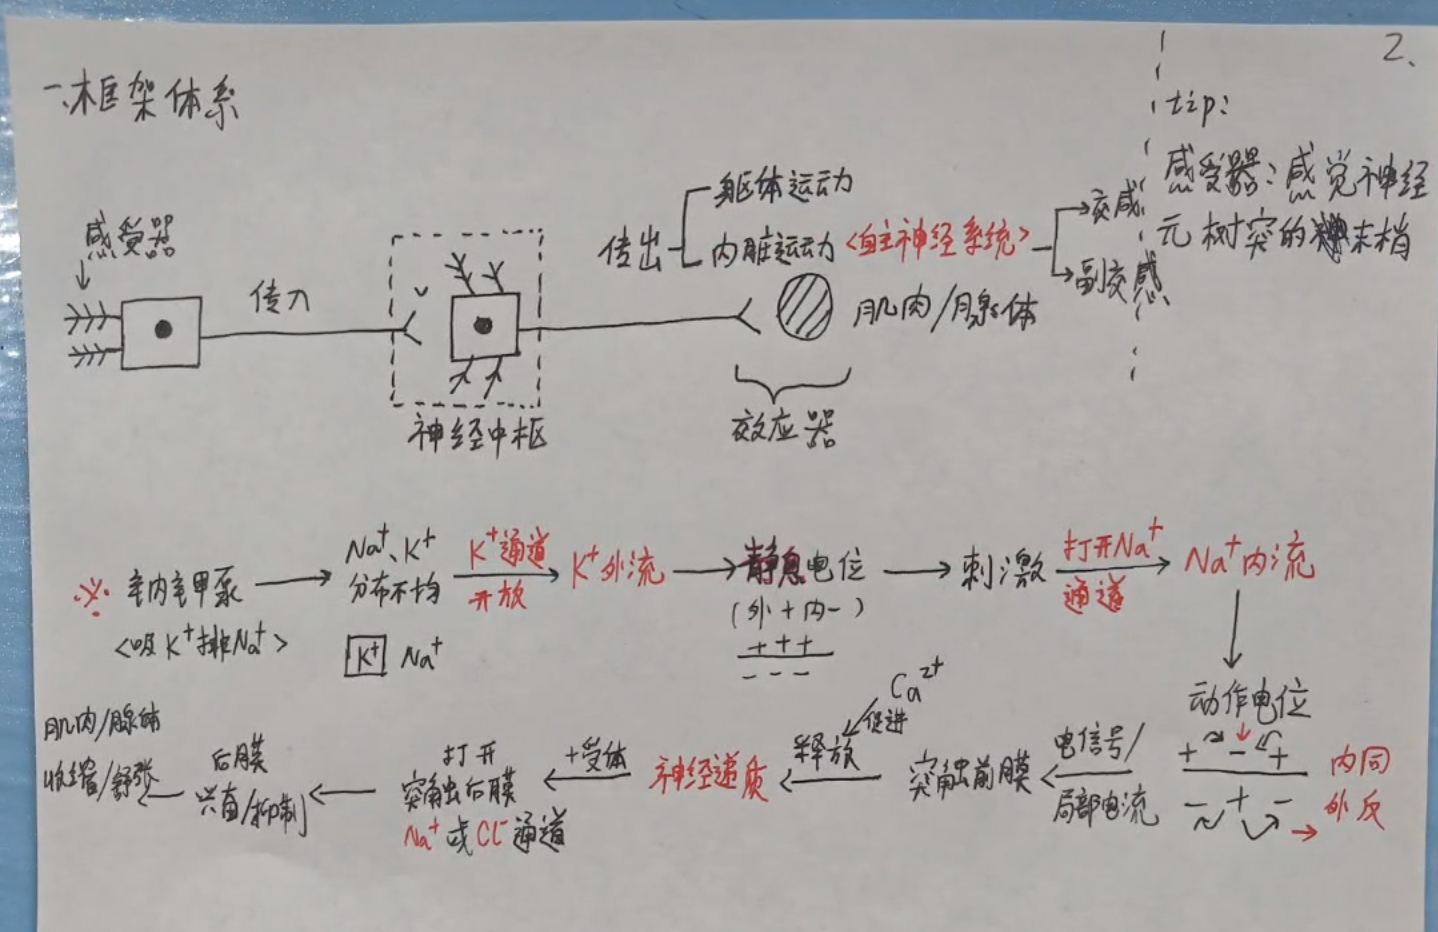 2、
一、框架体系
tip:
感受器:感觉神经
元树突的末梢
感受器
传入
神经中枢
传出
躯体运动
内脏运动<自主神经系统>
交感
副交感
肌肉/腺体
效应器
※ 钠钾泵
<吸K⁺排Na⁺>
Na⁺、K⁺
分布不均
K⁺ Na⁺
K⁺通道
开放
K⁺外流
静息电位
(外+内-)
+++
---
刺激
打开Na⁺
通道
Na⁺内流
动作电位
+ - +
- + -
内同
外反
电信号/
局部电流
突触前膜
Ca²⁺
促进
释放
神经递质
+受体
打开
突触后膜
Na⁺或Cl⁻通道
后膜
兴奋/抑制
肌肉/腺体
收缩/舒张